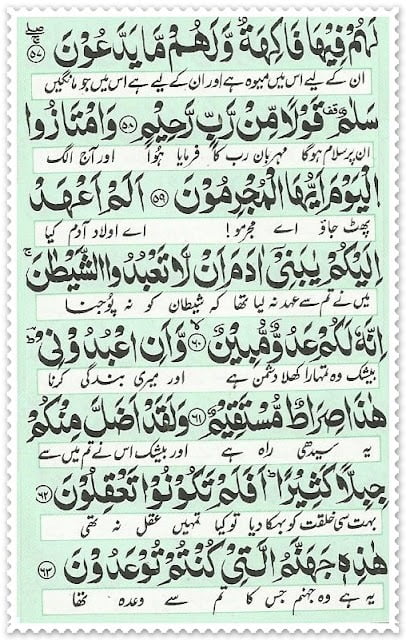 لَهُمْ فِيْهَا فَاكِهَةٌ وَّلَهُمْ مَّا يَدَّعُوْنَ ۝۵۷
ان کے لیے اس میں میوہ ہے اور ان کے لیے ہے اس میں جو مانگیں
سَلٰمٌ قف قَوْلًا مِّنْ رَّبٍّ رَّحِيْمٍ ۝۵۸ وَامْتَازُوا
ان پر سلام ہوگا مہربان رب کا فرمایا ہُوا اور آج الگ
الْيَوْمَ اَيُّهَا الْمُجْرِمُوْنَ ۝۵۹ اَلَمْ اَعْهَدْ
پھٹ جاؤ اے مجرمو! اے اولاد آدم کیا
اِلَيْكُمْ يٰبَنِيْٓ اٰدَمَ اَنْ لَّا تَعْبُدُوا الشَّيْطٰنَ ۚ
میں نے تم سے عہد نہ لیا تھا کہ شیطان کو نہ پُوجنا
اِنَّهٗ لَكُمْ عَدُوٌّ مُّبِيْنٌ ۝۶۰ وَّاَنِ اعْبُدُوْنِيْ ؕ
بیشک وہ تمہارا کھلا دشمن ہے اور میری بندگی کرنا
هٰذَا صِرَاطٌ مُّسْتَقِيْمٌ ۝۶۱ وَلَقَدْ اَضَلَّ مِنْكُمْ
یہ سیدھی راہ ہے اور بیشک اس نے تم میں سے
جِبِلًّا كَثِيْرًا ؕ اَفَلَمْ تَكُوْنُوْا تَعْقِلُوْنَ ۝۶۲
بہت سی خلقت کو بہکا دیا تو کیا تمہیں عقل نہ تھی
هٰذِهٖ جَهَنَّمُ الَّتِيْ كُنْتُمْ تُوْعَدُوْنَ ۝۶۳
یہ ہے وہ جہنم جس کا تم سے وعدہ تھا